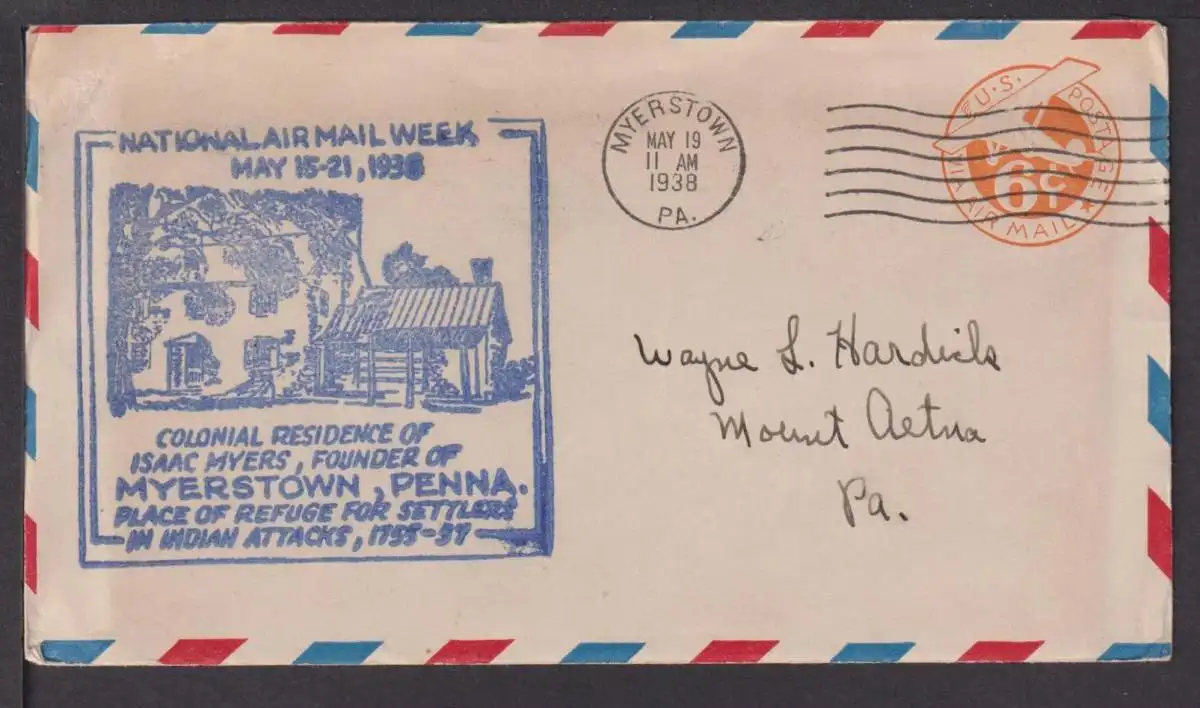 NATIONAL AIR MAIL WEEK
MAY 15-21, 1938
COLONIAL RESIDENCE OF
ISAAC MYERS, FOUNDER OF
MYERSTOWN, PENNA.
PLACE OF REFUGE FOR SETTLERS
IN INDIAN ATTACKS, 1755-57
MYERSTOWN
MAY 19
11 AM
1938
PA.
U.S. POSTAGE
6¢
VIA AIR MAIL
Wayne L.
Mount Aetna
Pa.